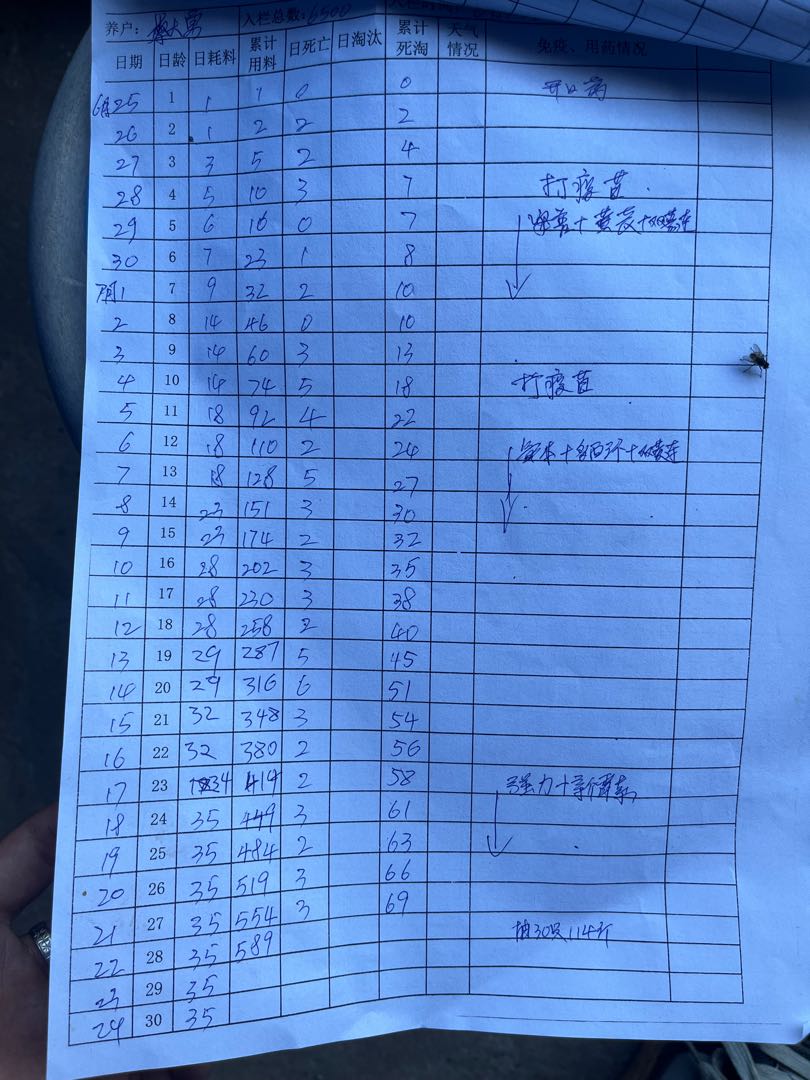 养户: 大勇 入栏总数: 6500
日期 日龄 日耗料 累计用料 日死亡 日淘汰 累计死淘 天气情况 免疫、用药情况
6月25 1 1 1 0 0 开口药
26 2 1 2 2 2
27 3 3 5 2 4
28 4 5 10 3 7 打疫苗
29 5 6 16 0 7 + 黄芪 +
30 6 7 23 1 8
7月1 7 9 32 2 10
2 8 14 46 0 10
3 9 14 60 3 13
4 10 14 74 5 18 打疫苗
5 11 18 92 4 22
6 12 18 110 2 24 + +
7 13 18 128 5 27
8 14 23 151 3 30
9 15 23 174 2 32
10 16 28 202 3 35
11 17 28 230 3 38
12 18 28 258 2 40
13 19 29 287 5 45
14 20 29 316 6 51
15 21 32 348 3 54
16 22 32 380 2 56
17 23 34 414 2 58 强力+
18 24 35 449 3 61
19 25 35 484 2 63
20 26 35 519 3 66
21 27 35 554 3 69
22 28 35 589 抽30只114斤
23 29 35
24 30 35